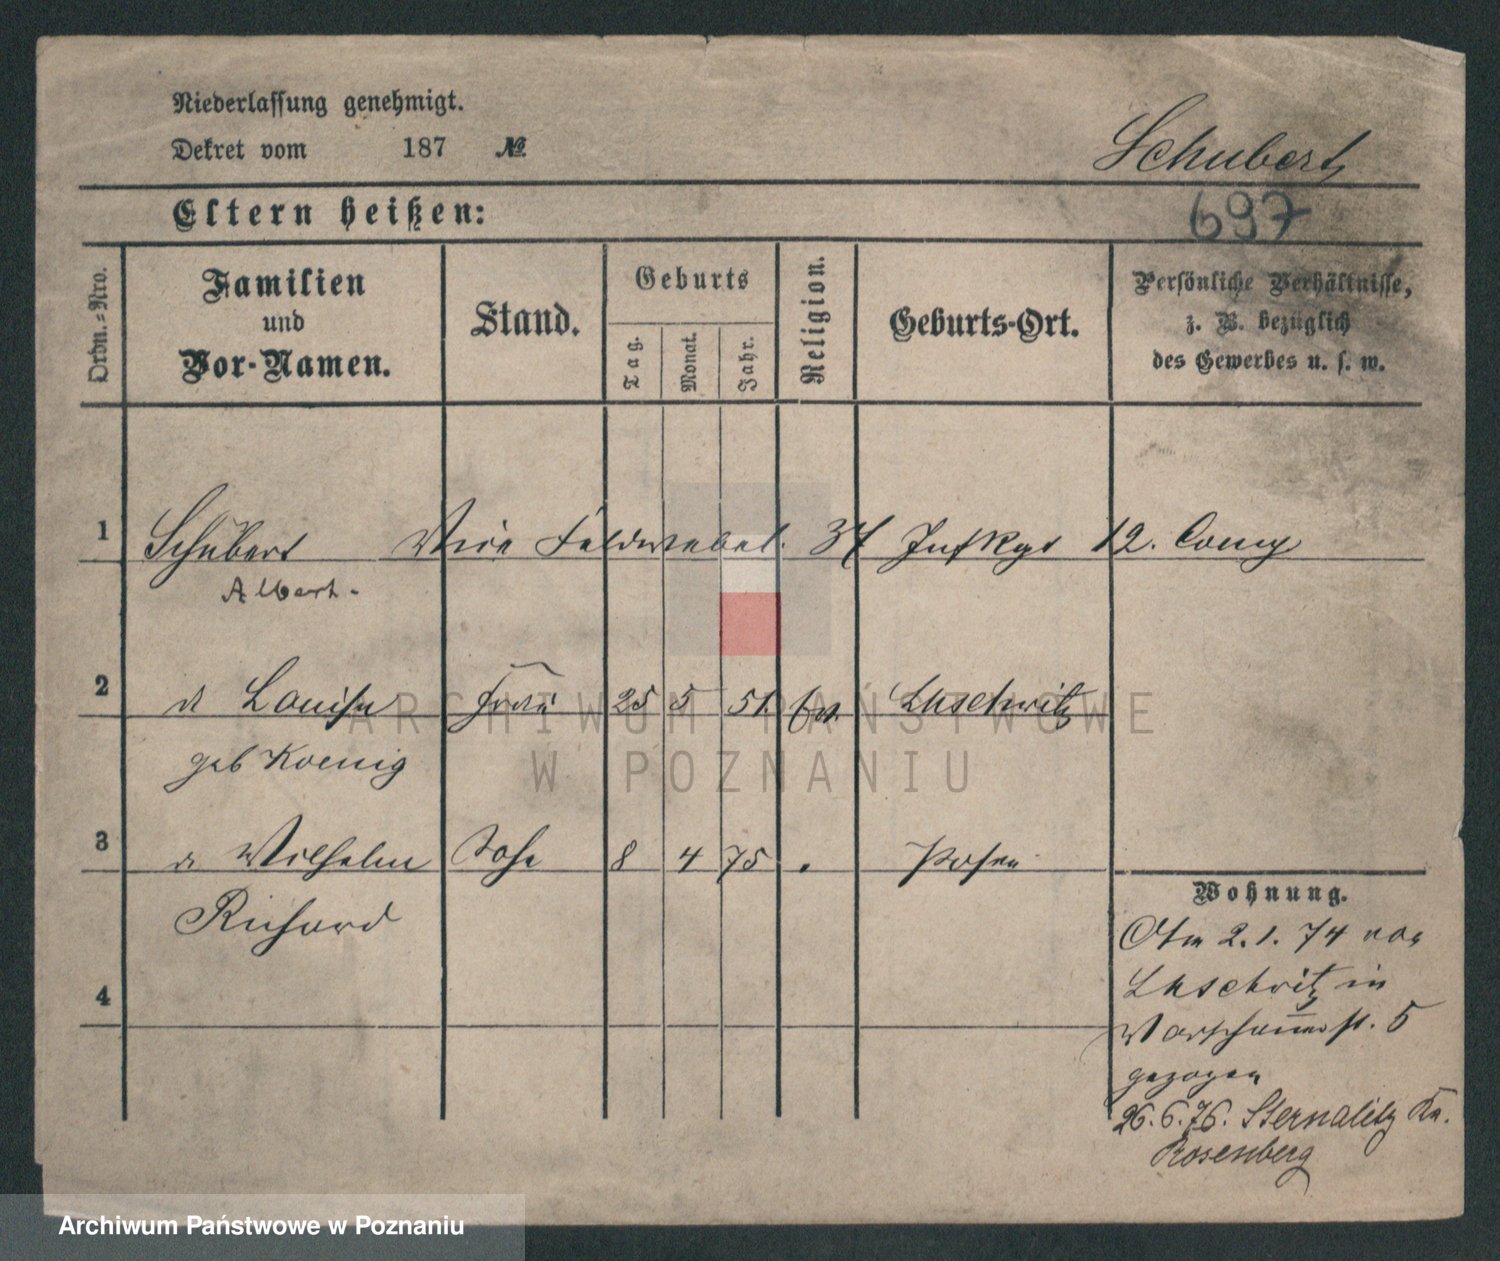 Niederlassung genehmigt.
Dekret vom 187 №
Schubert
Eltern heißen:
697
Ordn.-Nro.
Familien
und
Vor-Namen.
Stand.
Geburts
Tag.
Monat.
Jahr.
Religion.
Geburts-Ort.
Persönliche Verhältnisse,
z. B. bezüglich
des Gewerbes u. s. w.
1 Schubert Vice Feldwebel. 37 Inf Rgt 12. Comp
Albert.
2 Louise Frau 25 5 51. ev. Luschwitz
geb Koenig
3 Wilhelm Sohn 8 4 75 Posen
Richard
4
Wohnung.
Am 2. 1. 74 von
Luschwitz in
Warschauerst. 5
gezogen
26. 6. 76. Sternalitz Kr.
Rosenberg
ARCHIWUM PAŃSTWOWE
W POZNANIU
Archiwum Państwowe w Poznaniu